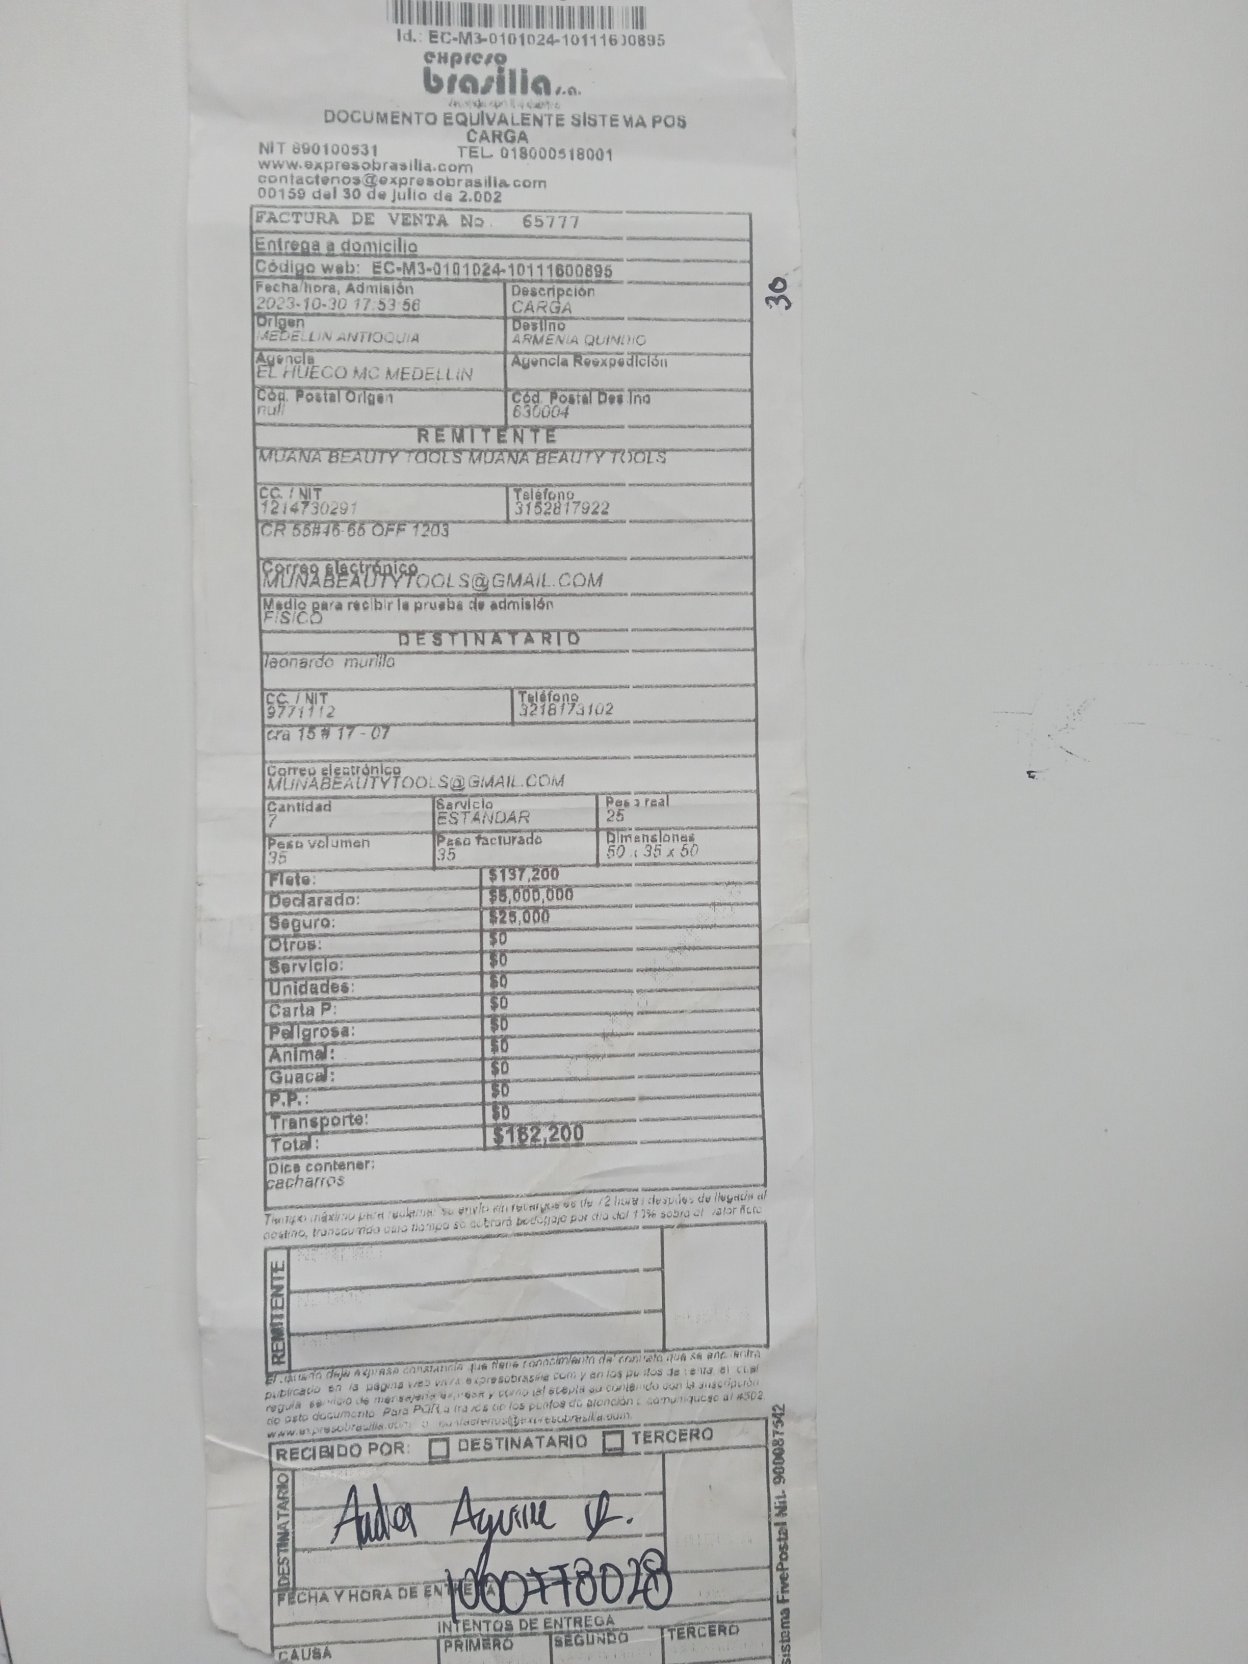 Id.: EC-M3-0101024-10111600895
expreso
brasilia s.a.
DOCUMENTO EQUIVALENTE SISTEMA POS
CARGA
NIT 890100531 TEL. 018000518001
www.expresobrasilia.com
contactenos@expresobrasilia.com
00159 del 30 de julio de 2.002
FACTURA DE VENTA No. 65777
Entrega a domicilio
Código web: EC-M3-0101024-10111600895
Fecha/hora, Admisión Descripción
2023-10-30 17:53:56 CARGA
30
Origen Destino
MEDELLIN ANTIOQUIA ARMENIA QUINDIO
Agencia Agencia Reexpedición
EL HUECO MC MEDELLIN
Cód. Postal Origen Cód. Postal Destino
null 630004
REMITENTE
MUANA BEAUTY TOOLS MUANA BEAUTY TOOLS
CC. / NIT Teléfono
1214730291 3152817922
CR 55#46-56 OFF 1203
Correo electrónico
MUNABEAUTYTOOLS@GMAIL.COM
Medio para recibir la prueba de admisión
FISICO
DESTINATARIO
leonardo murillo
CC. / NIT Teléfono
9771112 3218173102
cra 15 # 17 - 07
Correo electrónico
MUNABEAUTYTOOLS@GMAIL.COM
Cantidad Servicio Peso real
7 ESTANDAR 25
Peso volumen Peso facturado Dimensiones
35 35 50 x 35 x 50
Flete: $137,200
Declarado: $5,000,000
Seguro: $25,000
Otros: $0
Servicio: $0
Unidades: $0
Carta P: $0
Peligrosa: $0
Animal: $0
Guacal: $0
P.P.: $0
Transporte: $0
Total: $162,200
Dice contener:
cacharros
Tiempo máximo para reclamar su envío sin recargos es de 72 horas después de llegada al
destino, transcurrido este tiempo se cobrará bodegaje por día del 10% sobre el valor flete
REMITENTE
El usuario deja expresa constancia que tiene conocimiento del contrato que se encuentra
publicado en la página web www.expresobrasilia.com y en los puntos de venta, el cual
regula servicio de mensajería expresa y como tal acepta su contenido con la suscripción
de este documento. Para PQR a través de los puntos de atención, comuníquese al #502,
www.expresobrasilia.com o contactenos@expresobrasilia.com.
RECIBIDO POR: DESTINATARIO TERCERO
DESTINATARIO
Aguirre
1000778028
FECHA Y HORA DE ENTREGA
INTENTOS DE ENTREGA
CAUSA PRIMERO SEGUNDO TERCERO
Sistema FivePostal Nit.- 900087542